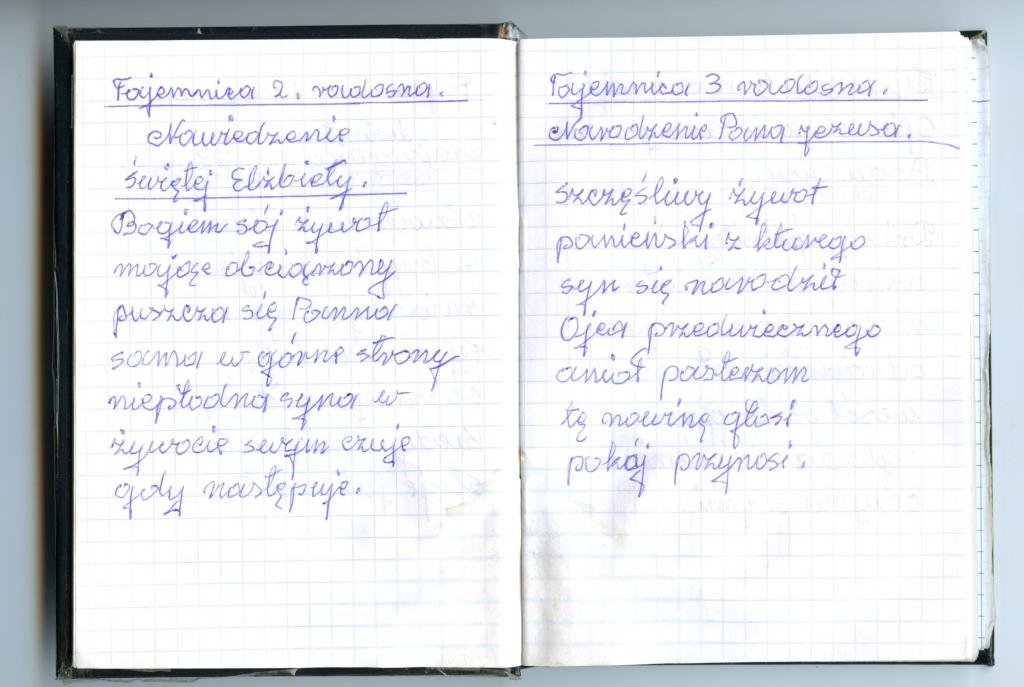 Tajemnica 2. radosna.
Nawiedzenie
świętej Elżbiety.
Bogiem sój żywot
mojące obciąrzony
puszcza się Panna
sama w górne strony
niepłodna syna w
żywocie swym czuje
gdy następuje.
Tajemnica 3 radosna.
Narodzenie Pana Jezusa.
szczęśliwy żywot
panieński z kturego
syn się narodził
Ojca przedwiecznego
anioł pasterzom
tę nowinę głosi
pokój przynosi.